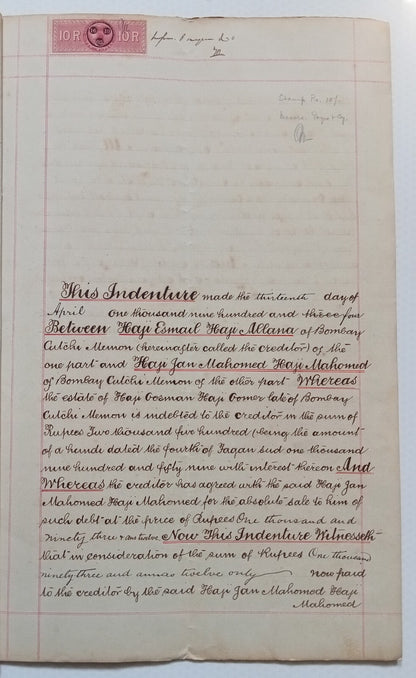 10 R 10 R
Stamp Rs. 10/-
This Indenture made the thirteenth day of
April one thousand nine hundred and three four
Between Haji Esmail Haji Allana of Bombay
Cutchi Memon (hereinafter called the creditor) of the
one part and Haji Jan Mahomed Haji Mahomed
of Bombay Cutchi Memon of the other part Whereas
the estate of Haji Oosman Haji Oomer late of Bombay
Cutchi Memon is indebted to the creditor in the sum of
Rupees Two thousand five hundred (being the amount
of a hundi dated the fourth of Fagan sud one thousand
nine hundred and fifty nine with interest thereon And
Whereas the creditor has agreed with the said Haji Jan
Mahomed Haji Mahomed for the absolute sale to him of
such debt at the price of Rupees One thousand and
ninety three & ans twelve Now This Indenture Witnesseth
that in consideration of the sum of Rupees One thousand
ninety three and annas twelve only now paid
to the creditor by the said Haji Jan Mahomed Haji
Mahomed